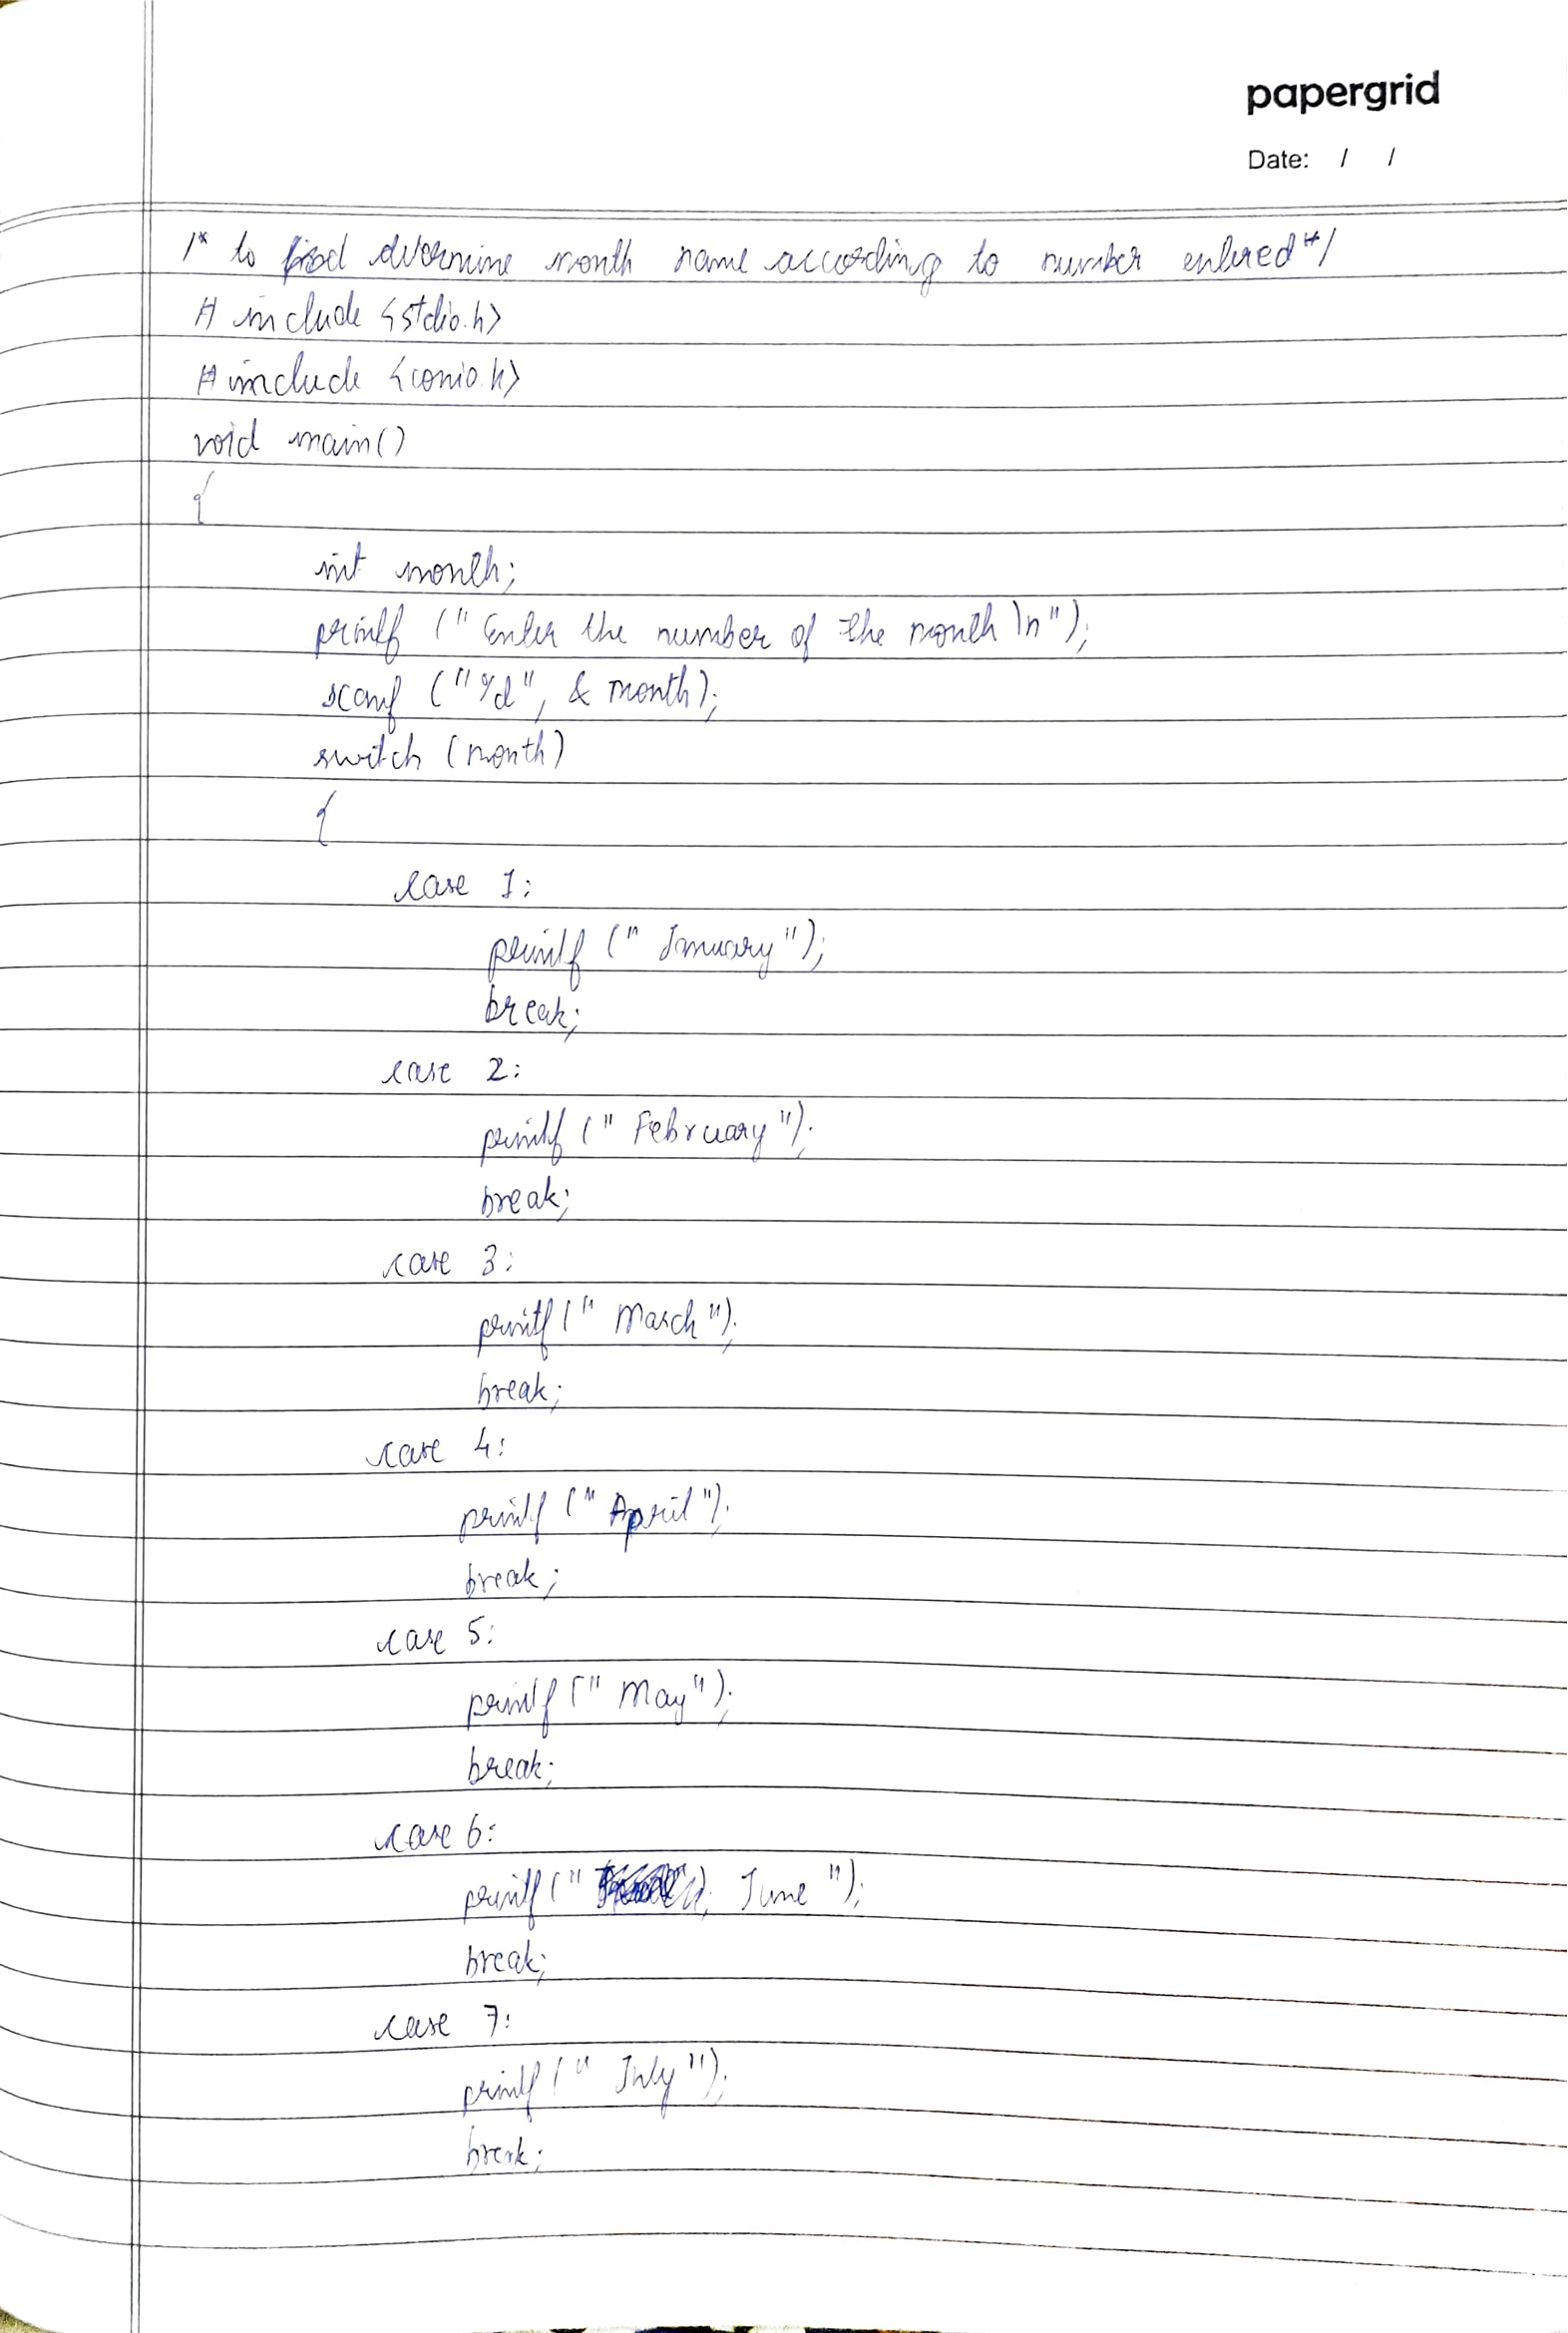 papergrid
Date: / /
/* to find determine month name according to number entered */
# include <stdio.h>
# include <conio.h>
void main()
{
int month;
printf (" Enter the number of the month \n");
scanf ("%d", & month);
switch (month)
{
case 1:
printf (" January");
break;
case 2:
printf (" February");
break;
case 3:
printf (" March");
break;
case 4:
printf (" April");
break;
case 5:
printf (" May");
break;
case 6:
printf (" June ");
break;
case 7:
printf (" July");
break;